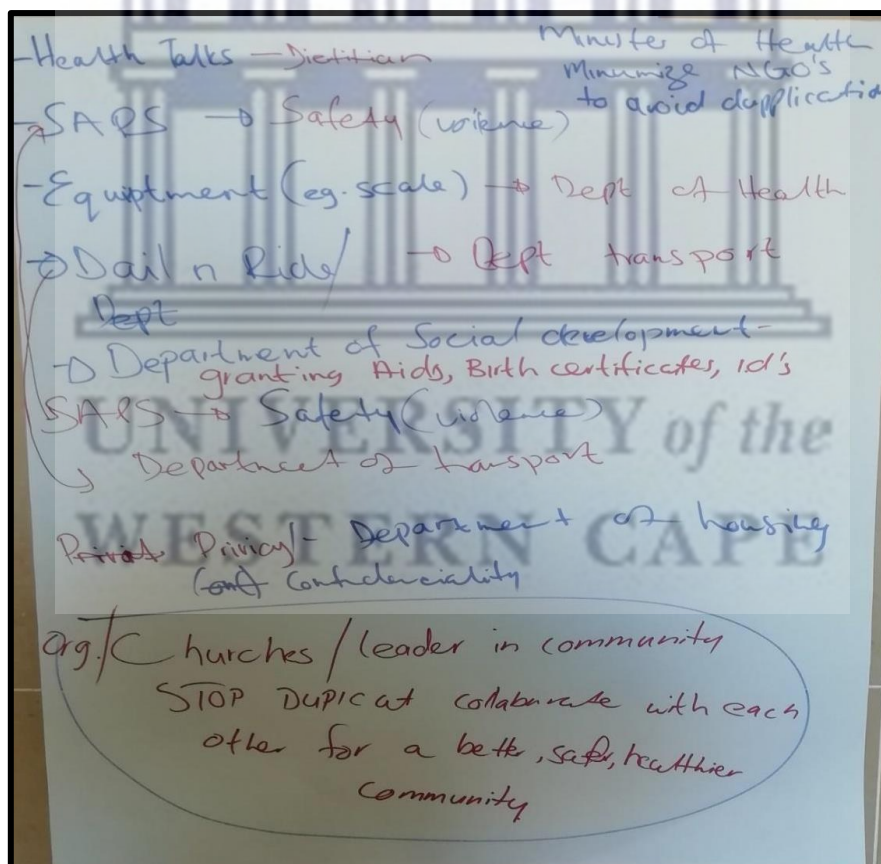 -Health Talks - Dietitian
Minister of Health
Minumize NGO's
to avoid dupplicatio
-SAPS → Safety (voilence)
-Equiptment (eg. scale) → Dept of Health
→ Dail n Ride/ → Dept transport
Dept
→ Department of Social development-
granting Aids, Birth certificates, id's
SAPS → Safety (violence)
Department of transport
UNIVERSITY of the
Privicy/- Department of housing
WESTERN CAPE
(conf) Confidenciality
Org./Churches/leader in community
STOP DUPIC at collaburate with each
other for a better, safer, healthier
community